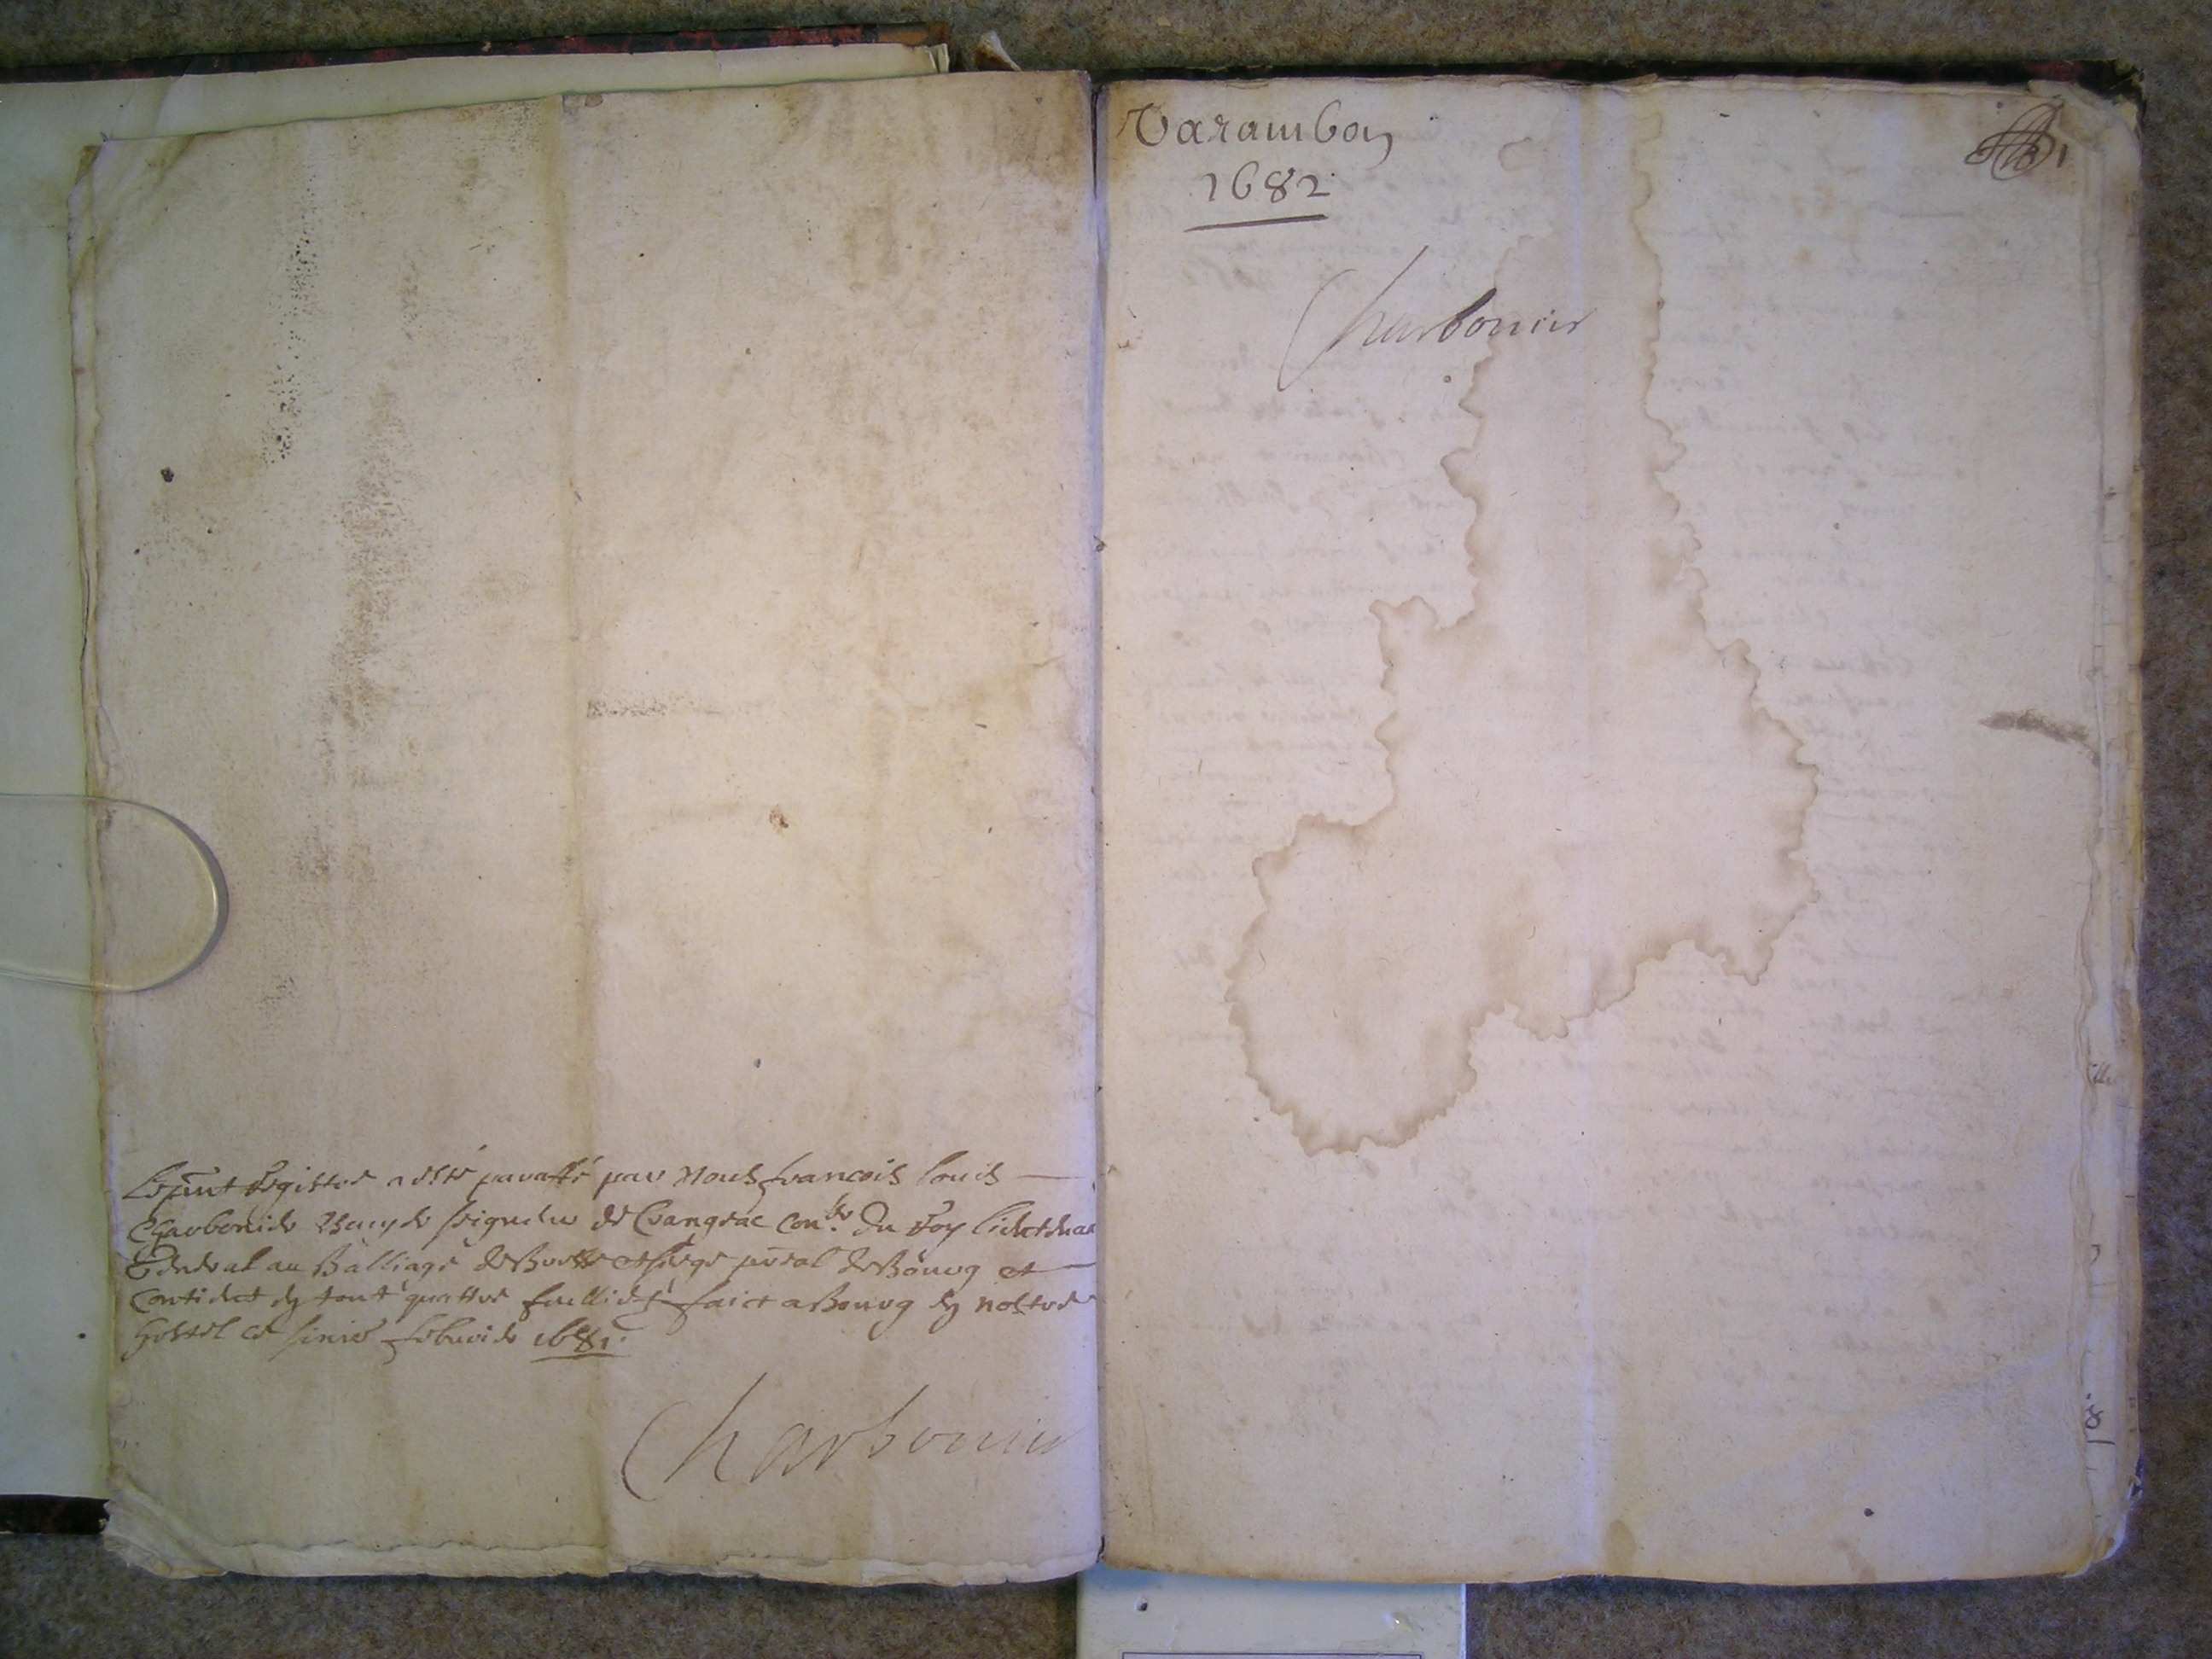 Le pnt Registre a esté paraffé par Nous francois louis
Charbonier Escuyer seigneur de Crangeac con.er du Roy lieutenan
General au Balliage de Bresse et siege pnral de Bourg et
contient en tout quattre fuillietz faict a Bourg en nostre
hostel ce febvrier 1681.
Charbonier
Varambon
1682
Charbonier
1